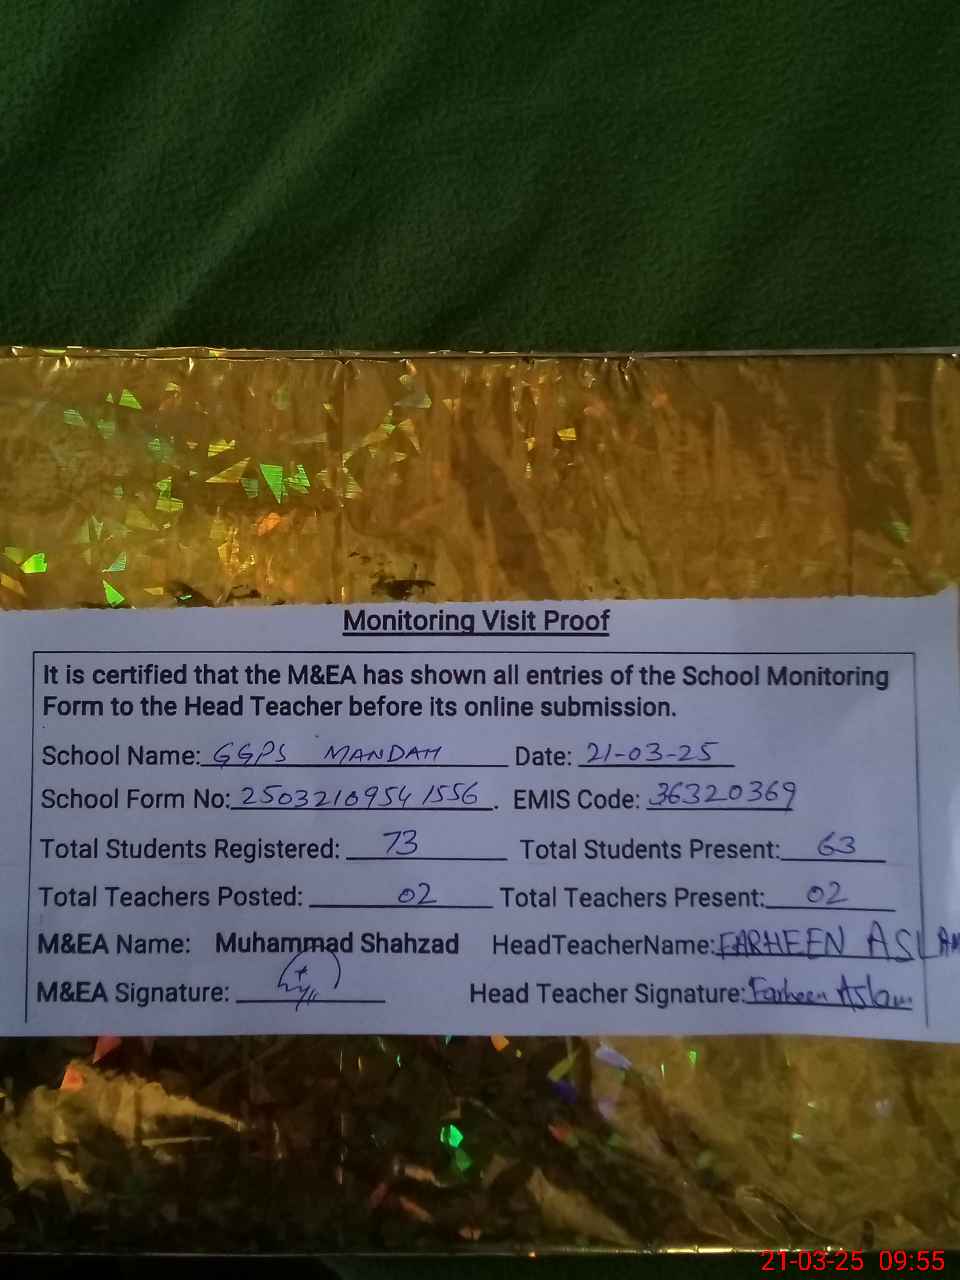 Monitoring Visit Proof
It is certified that the M&EA has shown all entries of the School Monitoring
Form to the Head Teacher before its online submission.
School Name: GGPS MANDAH Date: 21-03-25
School Form No: 25032109541556. EMIS Code: 36320369
Total Students Registered: 73 Total Students Present: 63
Total Teachers Posted: 02 Total Teachers Present: 02
M&EA Name: Muhammad Shahzad HeadTeacherName: FARHEEN ASLAM
M&EA Signature: Head Teacher Signature: Farheen Aslam
21-03-25 09:55